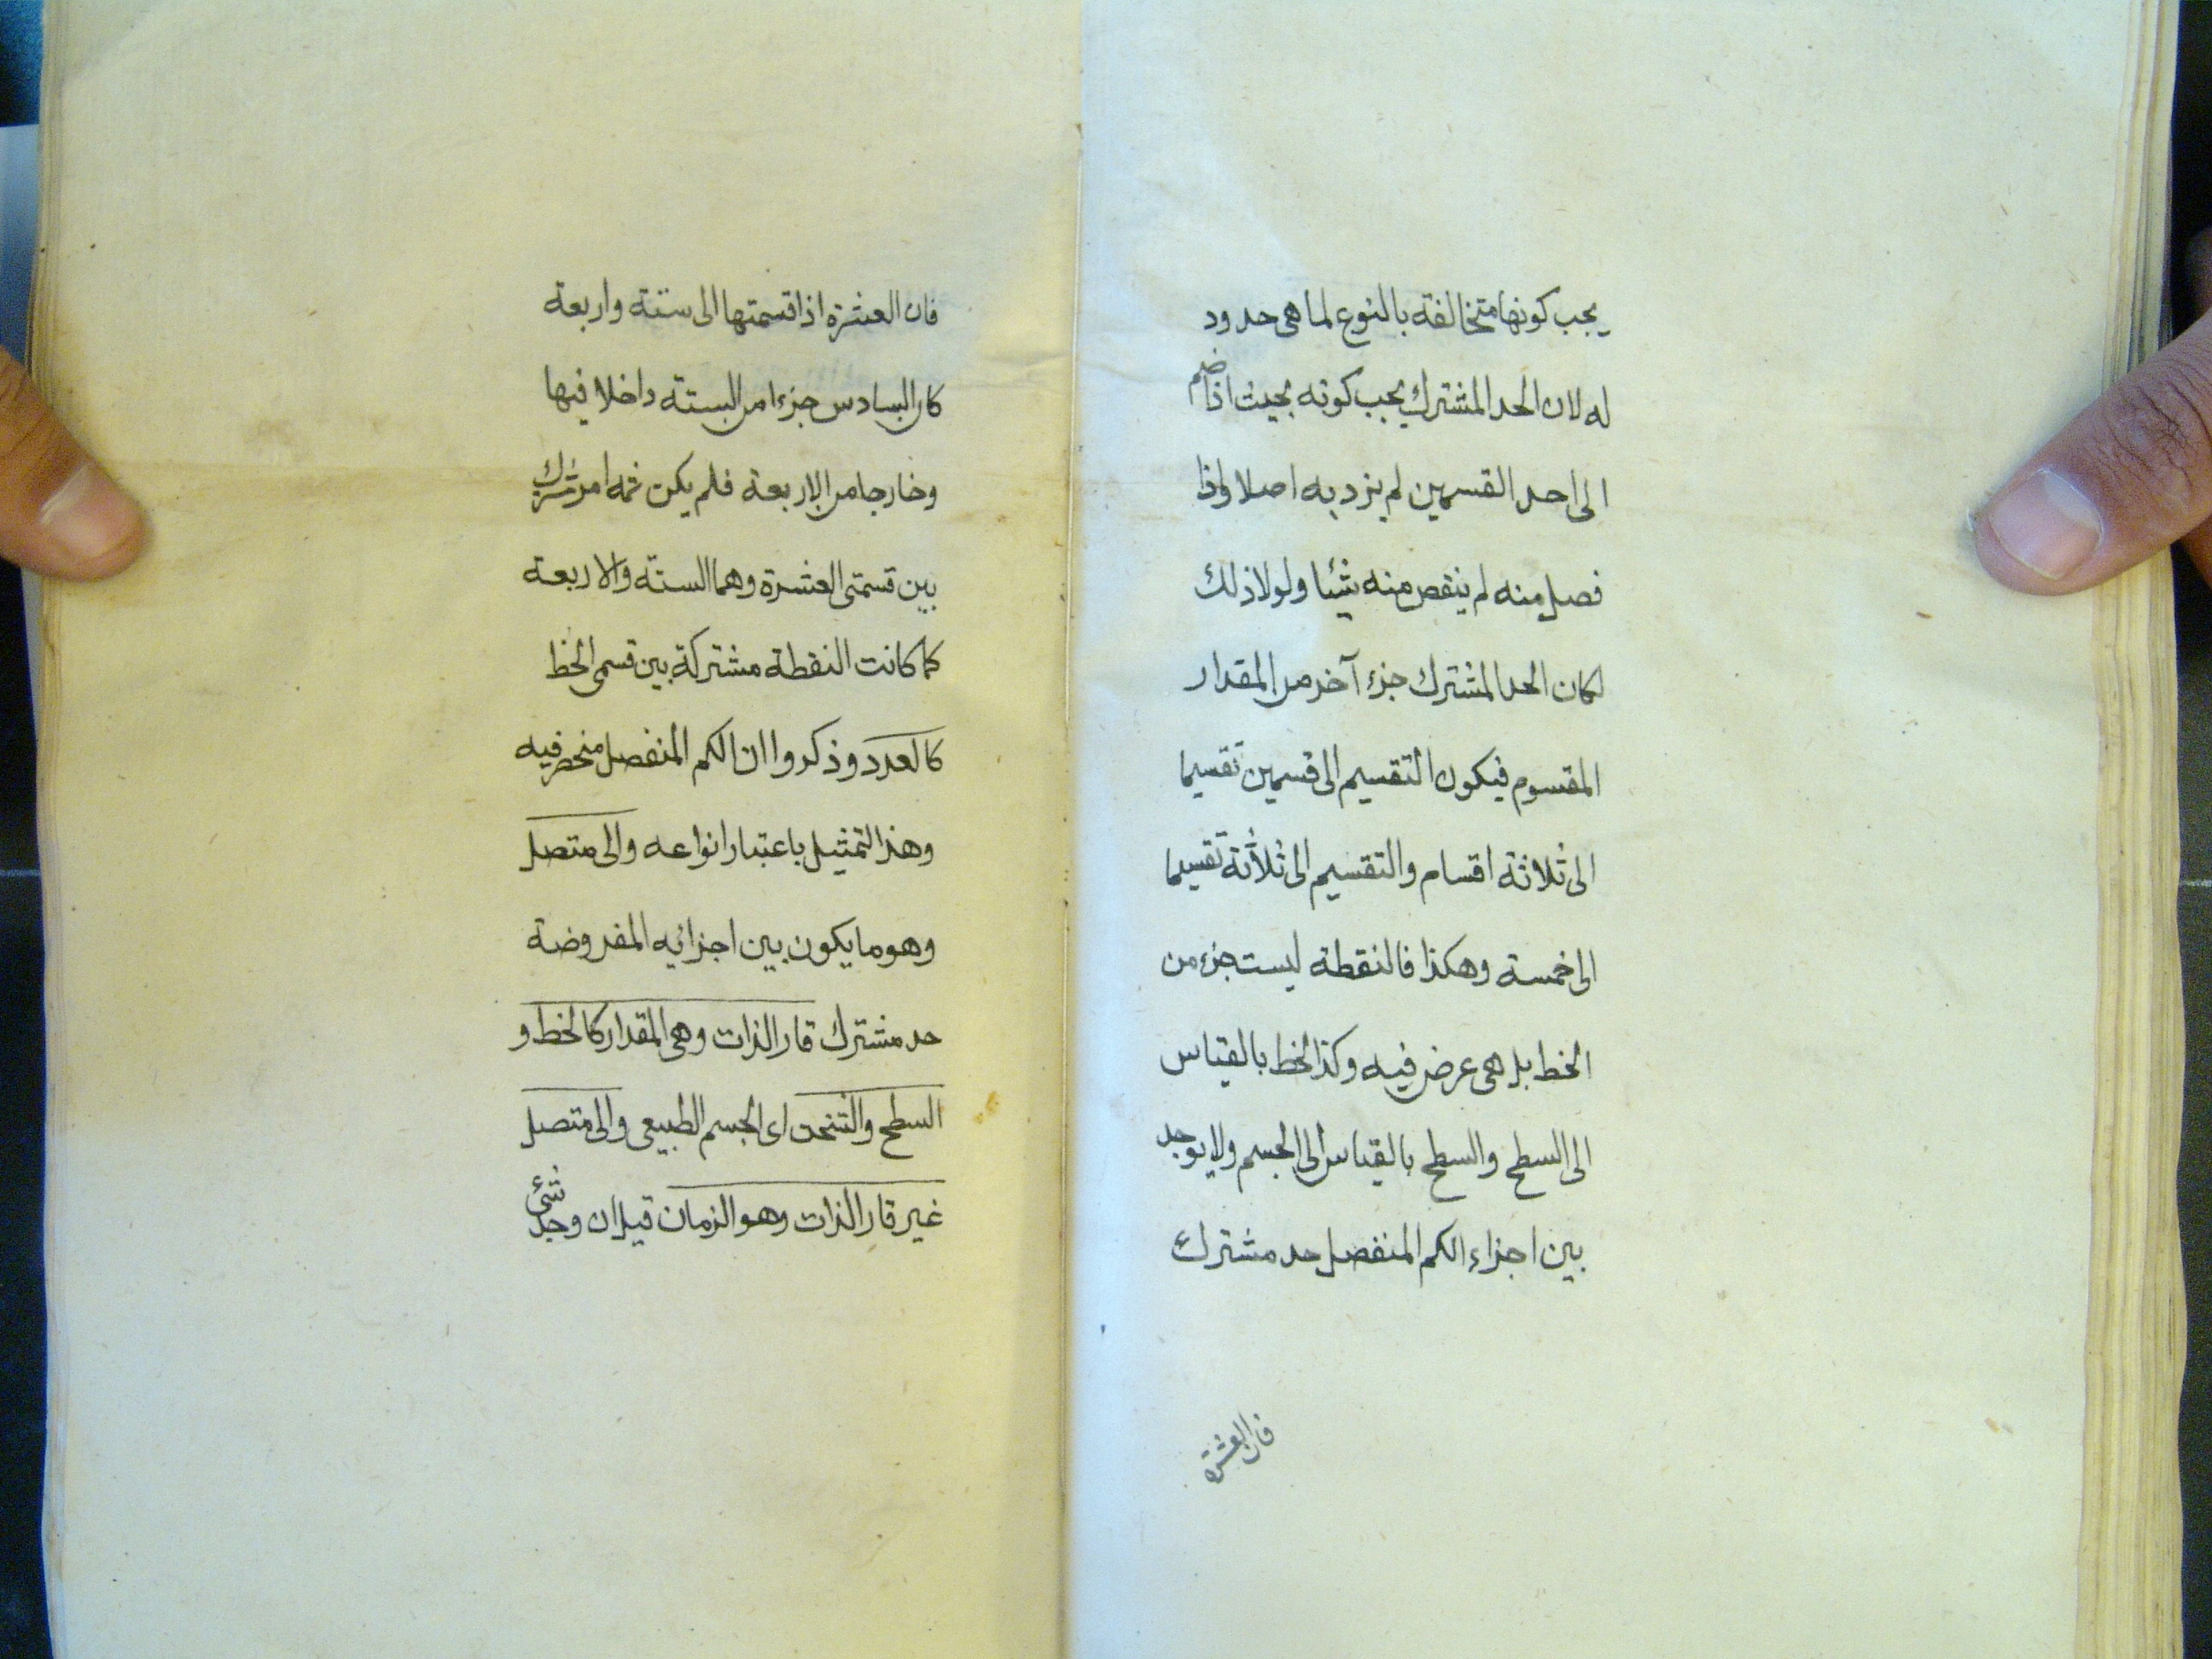 يجب كونها متخالفة بالنوع لما هى حدود
له لان الحد المشترك يجب كونه بحيث اذا ضم
الى احد القسمين لم يزد به اصلا واذا
فصل منه لم ينقص منه شيئا ولولا ذلك
لكان الحد المشترك جزء آخر من المقدار
المقسوم فيكون التقسيم الى قسمين تقسيما
الى ثلاثة اقسام والتقسيم الى ثلاثة تقسيما
الى خمسة وهكذا فالنقطة ليست جزء من
الخط بل هى عرض فيه وكذا الخط بالقياس
الى السطح والسطح بالقياس الى الجسم ولا يوجد
بين اجزاء الكم المنفصل حد مشترك
فان العشرة
فان العشرة اذا قسمتها الى ستة واربعة
كان السادس جزءا من الستة داخلا فيها
وخارجا من الاربعة فلم يكن ثمه امر مشترك
بين قسمتى العشرة وهما الستة والاربعة
كما كانت النقطة مشتركة بين قسمى الخط
كالعدد وذكروا ان الكم المنفصل منحصر فيه
وهذا التمثيل باعتبار انواعه والى متصل
وهو ما يكون بين اجزائه المفروضة
حد مشترك قار الذات وهى المقدار كالخط و
السطح والثخن اى الجسم الطبيعى والى متصل
غير قار الذات وهو الزمان قيل ان وجد شئ